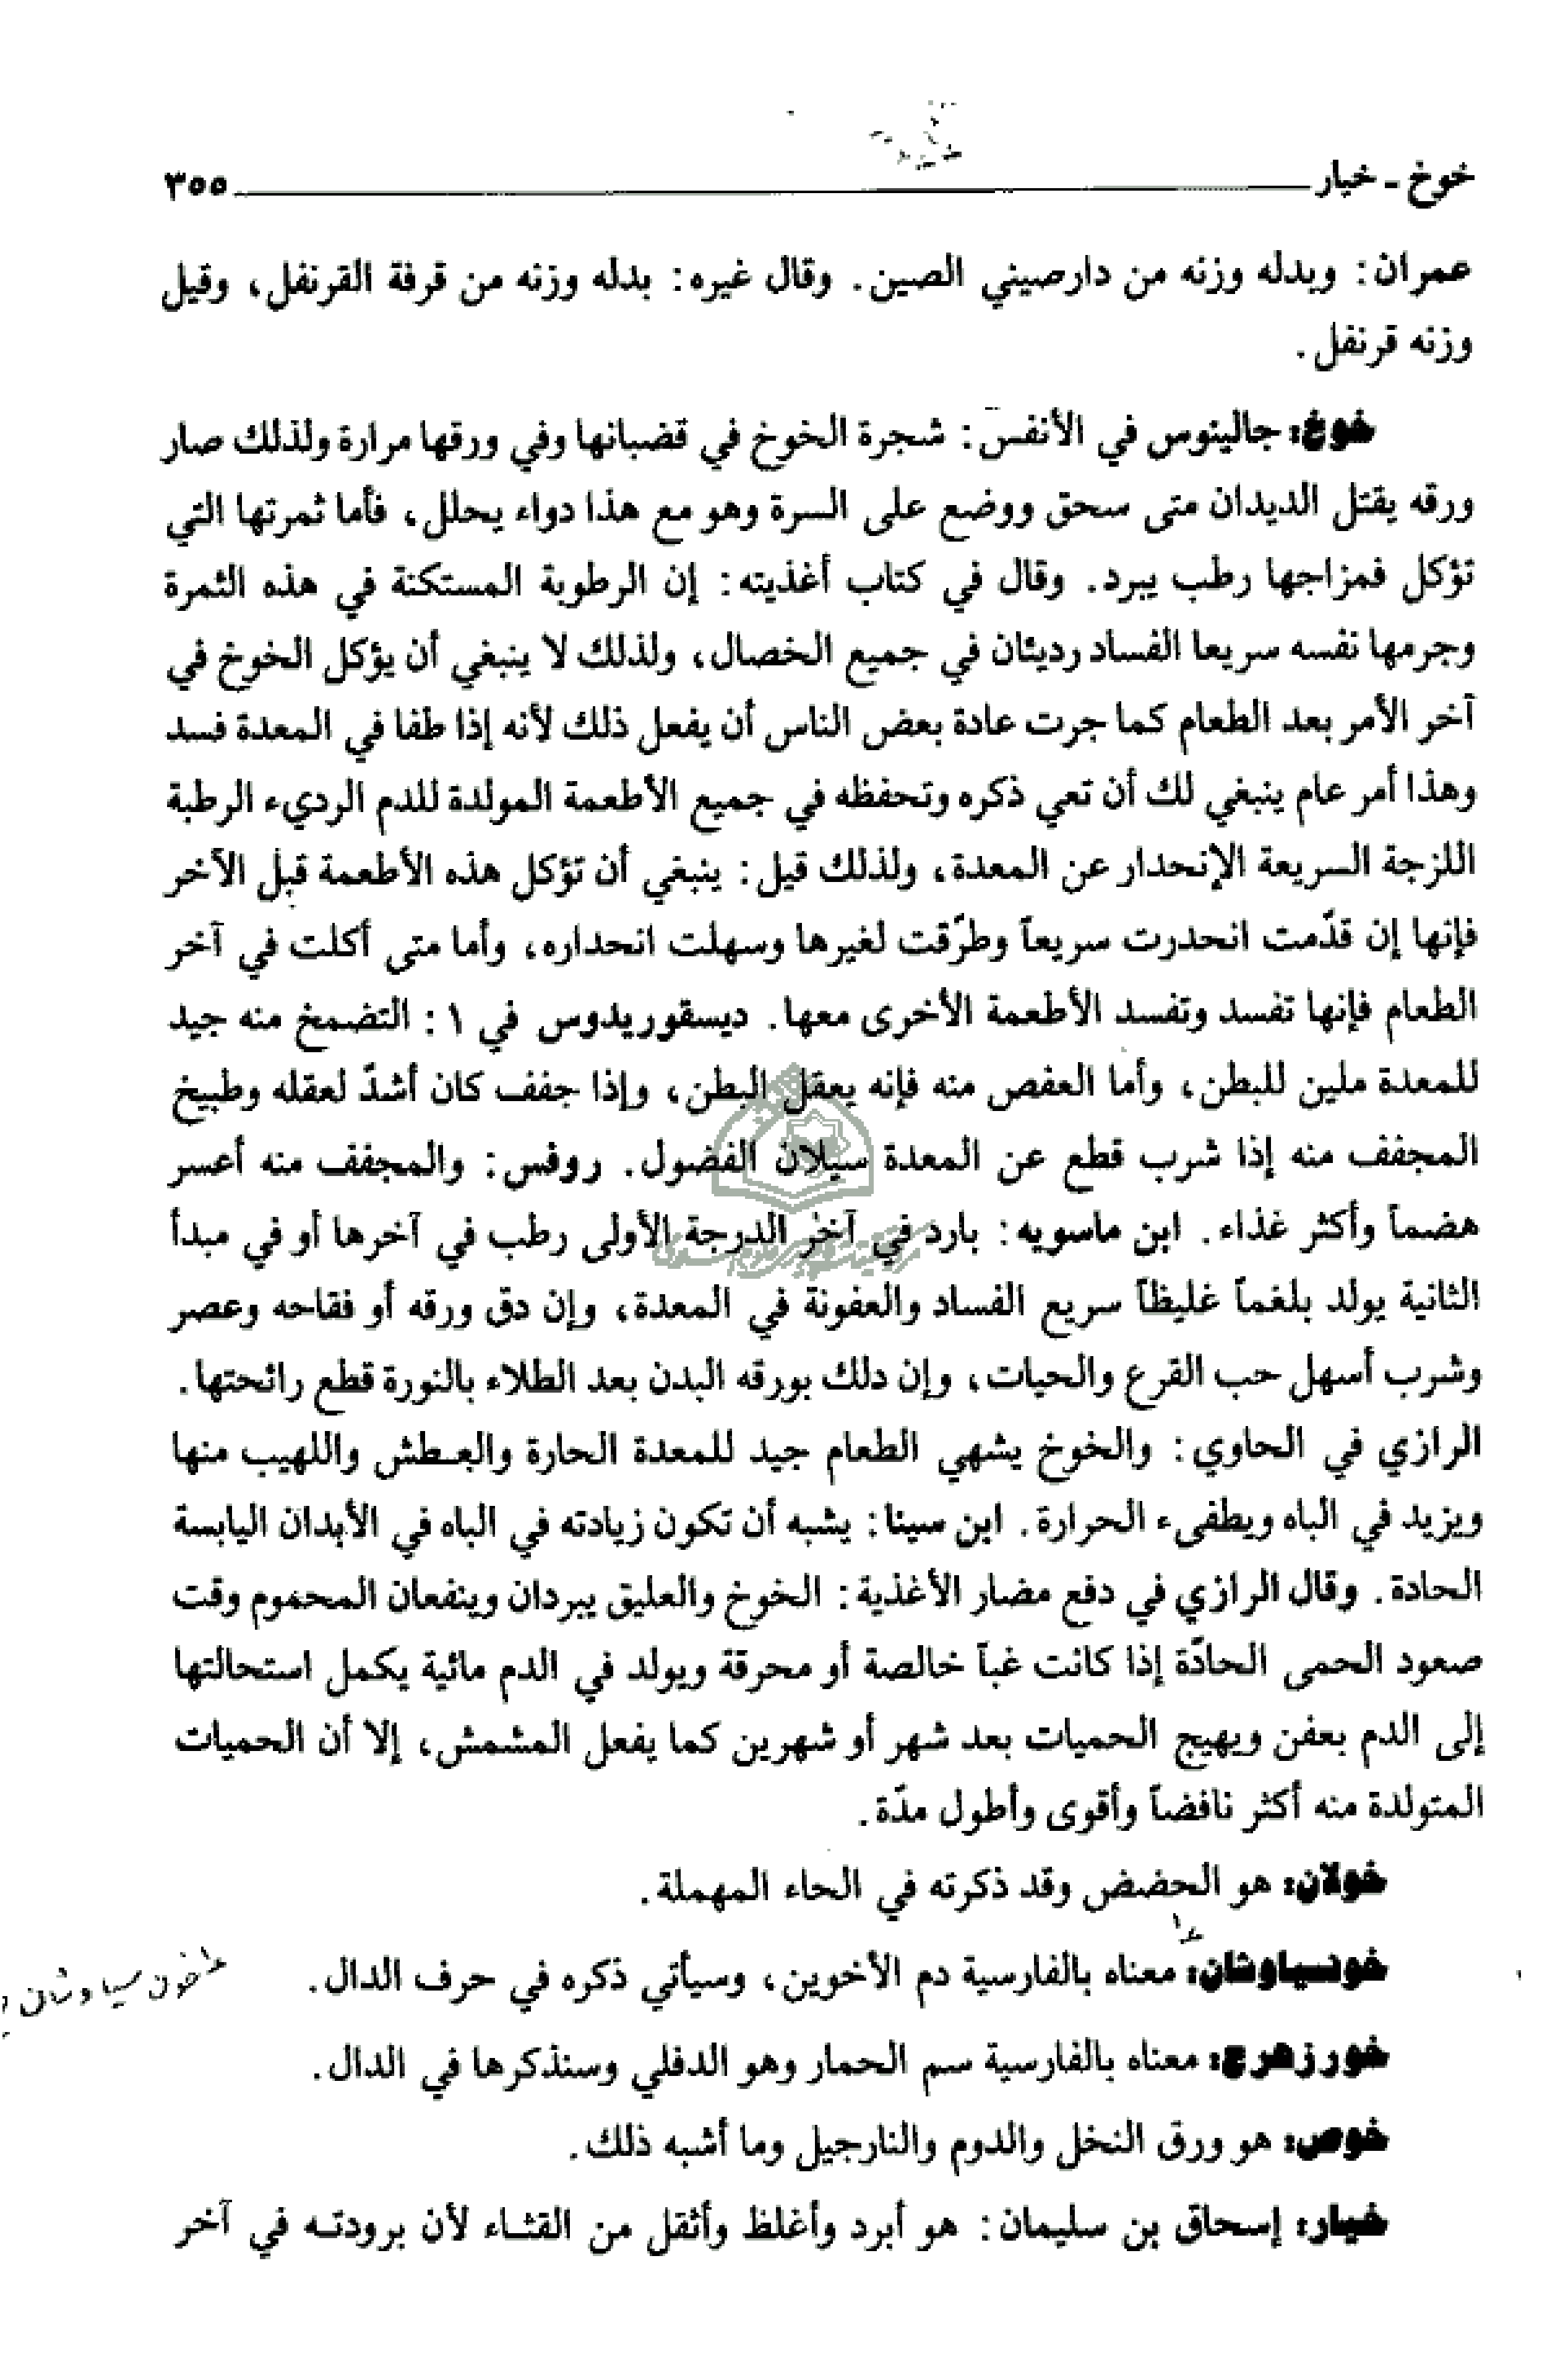 خوخ - خيار ٣٥٥
عمران: وبدله وزنه من دارصيني الصين. وقال غيره: بدله وزنه من قرفة القرنفل، وقيل
وزنه قرنفل.
خوخ: جالينوس في الأنفس: شجرة الخوخ في قضبانها وفي ورقها مرارة ولذلك صار
ورقه يقتل الديدان متى سحق ووضع على السرة وهو مع هذا دواء يحلل، فأما ثمرتها التي
تؤكل فمزاجها رطب يبرد. وقال في كتاب أغذيته: إن الرطوبة المستكنة في هذه الثمرة
وجرمها نفسه سريعا الفساد رديئان في جميع الخصال، ولذلك لا ينبغي أن يؤكل الخوخ في
آخر الأمر بعد الطعام كما جرت عادة بعض الناس أن يفعل ذلك لأنه إذا طفا في المعدة فسد
وهذا أمر عام ينبغي لك أن تعي ذكره وتحفظه في جميع الأطعمة المولدة للدم الرديء الرطبة
اللزجة السريعة الإنحدار عن المعدة، ولذلك قيل: ينبغي أن تؤكل هذه الأطعمة قبل الآخر
فإنها إن قدّمت انحدرت سريعاً وطرّقت لغيرها وسهلت انحداره، وأما متى أكلت في آخر
الطعام فإنها تفسد وتفسد الأطعمة الأخرى معها. ديسقوريدوس في ١: التضمخ منه جيد
للمعدة ملين للبطن، وأما العفص منه فإنه يعقل البطن، وإذا جفف كان أشدّ لعقله وطبيخ
المجفف منه إذا شرب قطع عن المعدة سيلان الفضول. روفس: والمجفف منه أعسر
هضماً وأكثر غذاء. ابن ماسويه: بارد في آخر الدرجة الأولى رطب في آخرها أو في مبدأ
الثانية يولد بلغماً غليظاً سريع الفساد والعفونة في المعدة، وإن دق ورقه أو فقاحه وعصر
وشرب أسهل حب القرع والحيات، وإن دلك بورقه البدن بعد الطلاء بالنورة قطع رائحتها.
الرازي في الحاوي: والخوخ يشهي الطعام جيد للمعدة الحارة والعطش واللهيب منها
ويزيد في الباه ويطفىء الحرارة. ابن سينا: يشبه أن تكون زيادته في الباه في الأبدان اليابسة
الحادة. وقال الرازي في دفع مضار الأغذية: الخوخ والعليق يبردان وينفعان المحموم وقت
صعود الحمى الحادّة إذا كانت غباً خالصة أو محرقة ويولد في الدم مائية يكمل استحالتها
إلى الدم بعفن ويهيج الحميات بعد شهر أو شهرين كما يفعل المشمش، إلا أن الحميات
المتولدة منه أكثر نافضاً وأقوى وأطول مدّة.
خولان: هو الحضض وقد ذكرته في الحاء المهملة.
خونسياوشان: معناه بالفارسية دم الأخوين، وسيأتي ذكره في حرف الدال.
خون سياوشان
خورزهرج: معناه بالفارسية سم الحمار وهو الدفلي وسنذكرها في الدال.
خوص: هو ورق النخل والدوم والنارجيل وما أشبه ذلك.
خيار: إسحاق بن سليمان: هو أبرد وأغلظ وأثقل من القثاء لأن برودته في آخر